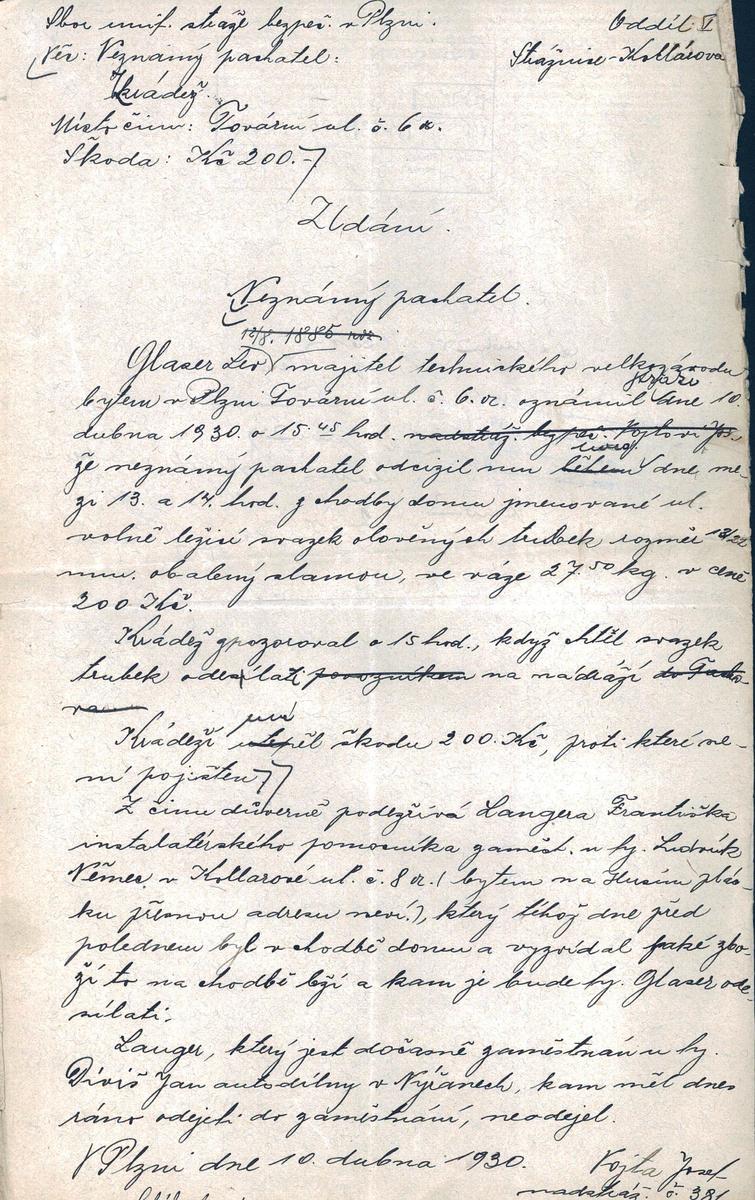 Sbor unif. stráže bezpeč. v Plzni. Oddíl V
Věc: Neznámý pachatel: Strážnice-Kollárova
krádež.
Místo činu: Tovární ul. č. 6
Škoda: Kč 200.-
Udání.
Neznámý pachatel.
12/8. 1885
Glaser Leo majitel technického velkozávodu
strážn
bytem v Plzni Tovární ul. č. 6. oznámil dne 10.
dubna 1930. o 15 45 hod. nadstráž. bezpeč. Vojtovi Jos.
že neznámý pachatel odcizil mu během dne me-
zi 13. a 14. hod. z chodby domu jmenované ul.
volně ležící svazek olověných trubek rozměr
mm. obalený slamou, ve váze 27.50 kg. v ceně
200 Kč.
Krádež zpozoroval o 15 hod., když chtěl svazek
trubek odesílati povozníkem na nádraží do
Krádeží utrpěl škodu 200. Kč, proti které ne-
ní pojištěn
Z činu důverně podezřívá Langera Františka
instalatérského pomocníka zaměst. u fy. Ludvík
Němec v Kollarově ul. č. 8 (bytem na Husím plác-
ku přesnou adresu neví.), který téhož dne před
polednem byl v chodbě domu a vyzvídal jaké zbo-
ží to na chodbě leží a kam je bude fy. Glaser ode-
sílati.
Langer, který jest dočasně zaměstnán u fy.
Diviš Jan autodílny v Nýřanech, kam měl dnes
ráno odejeti do zaměstnání, neodejel.
V Plzni dne 10. dubna 1930. Vojta Josef
nadstráž. č. 381